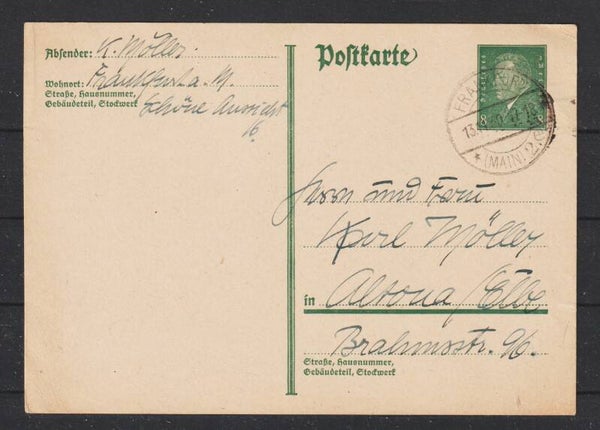 Absender: K. Möller.
Wohnort: Frankfurt a. M
Straße, Hausnummer,
Gebäudeteil, Stockwerk
Schöne Aussicht
16.
Postkarte
DEUTSCHES REICH
8 8
FRANKFURT
(MAIN)
Herrn und Frau
Karl Möller
in Altona /Elbe
Brahmsstr. 96.
Straße, Hausnummer,
Gebäudeteil, Stockwerk